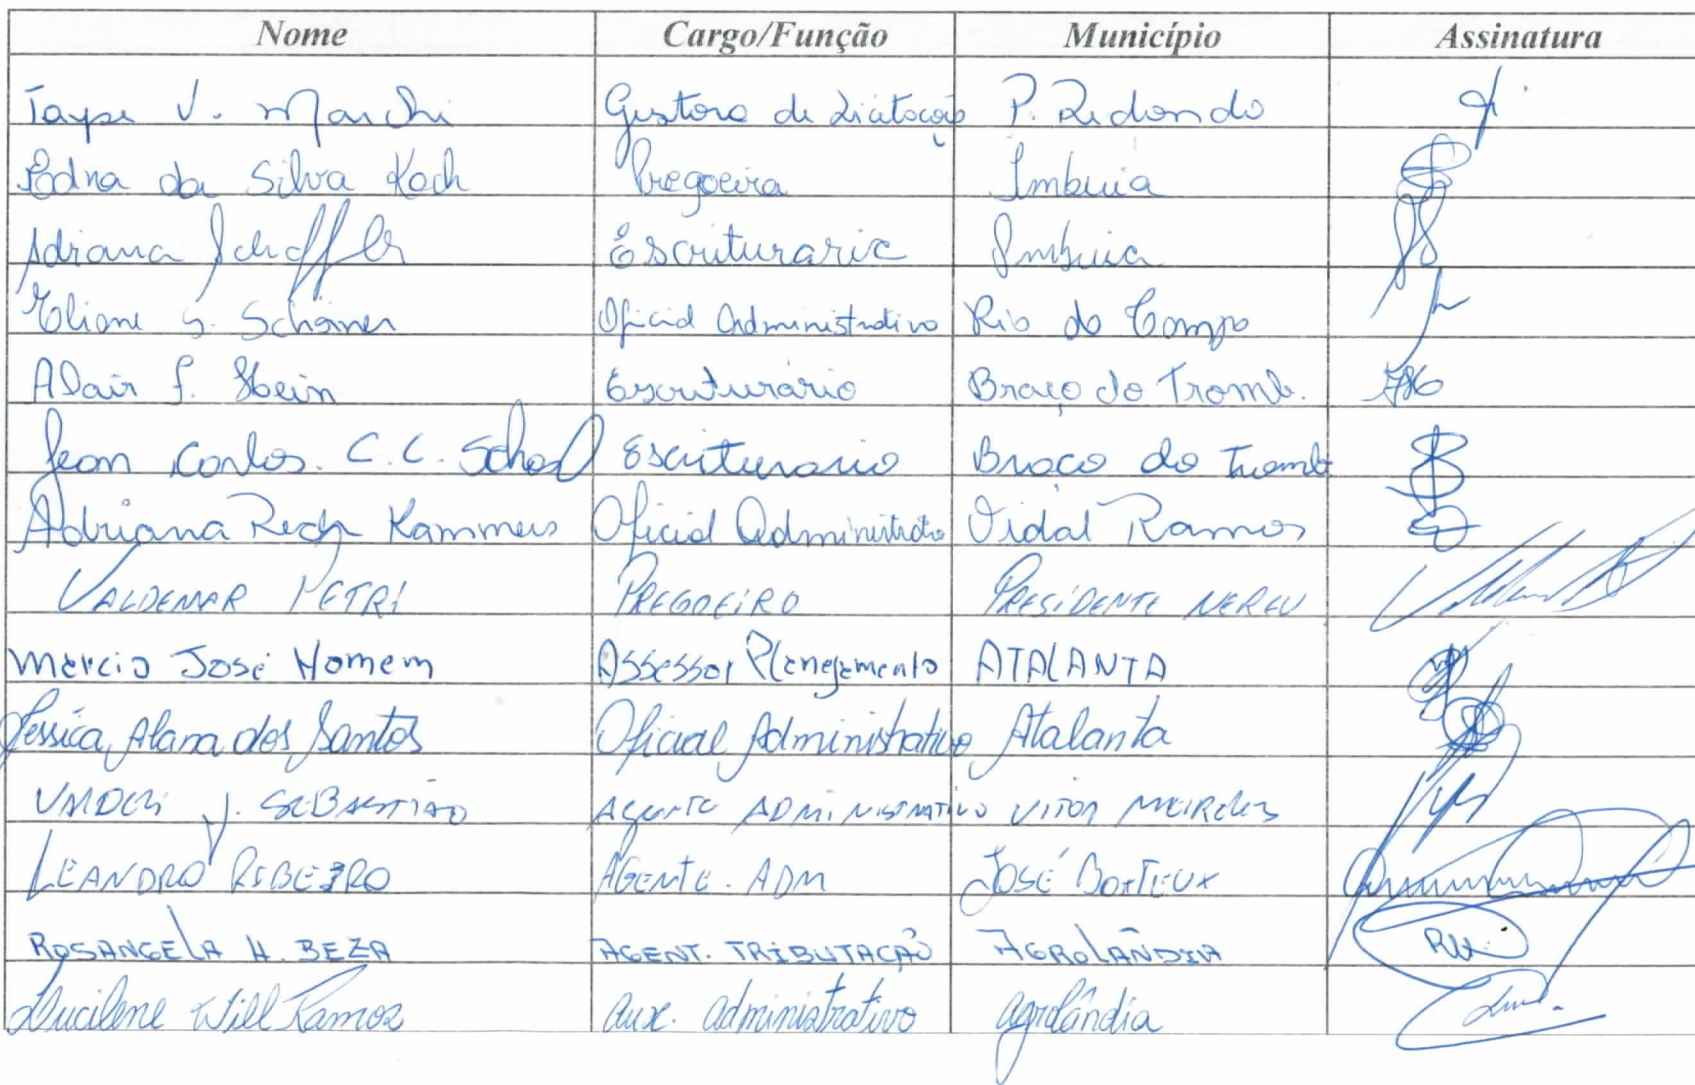 Nome Cargo/Função Município Assinatura
Tayse V. Marchi Gestora de Licitação P. Redondo
Edna da Silva Koch Pregoeira Imbuia
Adriana Scheffer Escrituraria Imbuia
Eliane S. Schöner Oficial Administrativo Rio do Campo
Alair J. Hein Escriturário Braço do Tromb.
Jean Carlos. C. C. Escriturario Braço do Tromb
Adriana Rech Kammers Oficial Administrativo Vidal Ramos
VALDEMAR PETRI PREGOEIRO PRESIDENTE NEREU
Marcio José Homem Assessor Planejamento ATALANTA
Jessica Alana dos Santos Oficial Administrativo Atalanta
VALDECI J. SEBASTIÃO AGENTE ADMINISTRATIVO VITOR MEIRELES
LEANDRO RIBEIRO AGENTE. ADM JOSÉ BOITEUX
ROSANGELA H. BEZA AGENT. TRIBUTAÇÃO AGROLÂNDIA
Lucilene Will Ramos aux. administrativo agrolândia